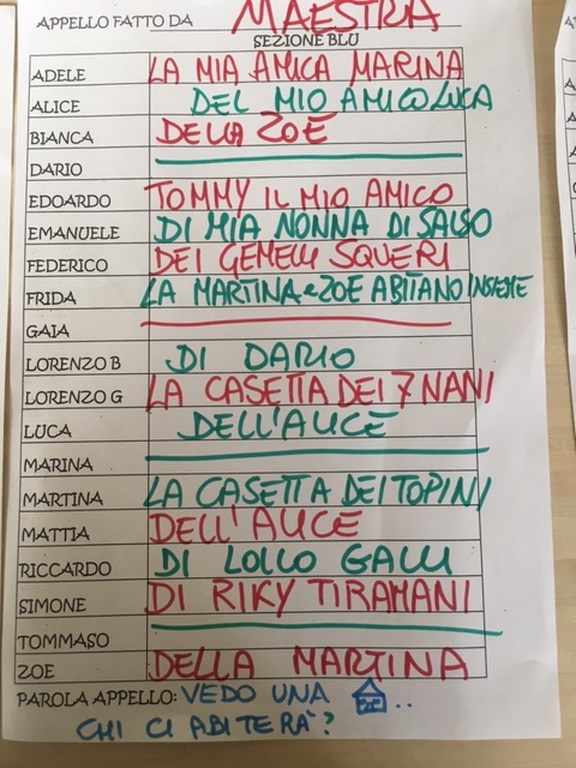 APPELLO FATTO DA MAESTRA
SEZIONE BLU
ADELE LA MIA AMICA MARINA
ALICE DEL MIO AMICO LUCA
BIANCA DELLA ZOE
DARIO
EDOARDO TOMMY IL MIO AMICO
EMANUELE DI MIA NONNA DI SALSO
FEDERICO DEI GEMELLI SQUERI
FRIDA LA MARTINA e ZOE ABITANO INSIEME
GAIA
LORENZO B DI DARIO
LORENZO G LA CASETTA DEI 7 NANI
LUCA DELL'ALICE
MARINA
MARTINA LA CASETTA DEI TOPINI
MATTIA DELL'ALICE
RICCARDO DI LOLLO GALLI
SIMONE DI RIKY TIRAMANI
TOMMASO
ZOE DELLA MARTINA
PAROLA APPELLO: VEDO UNA ..
CHI CI ABITERÀ?